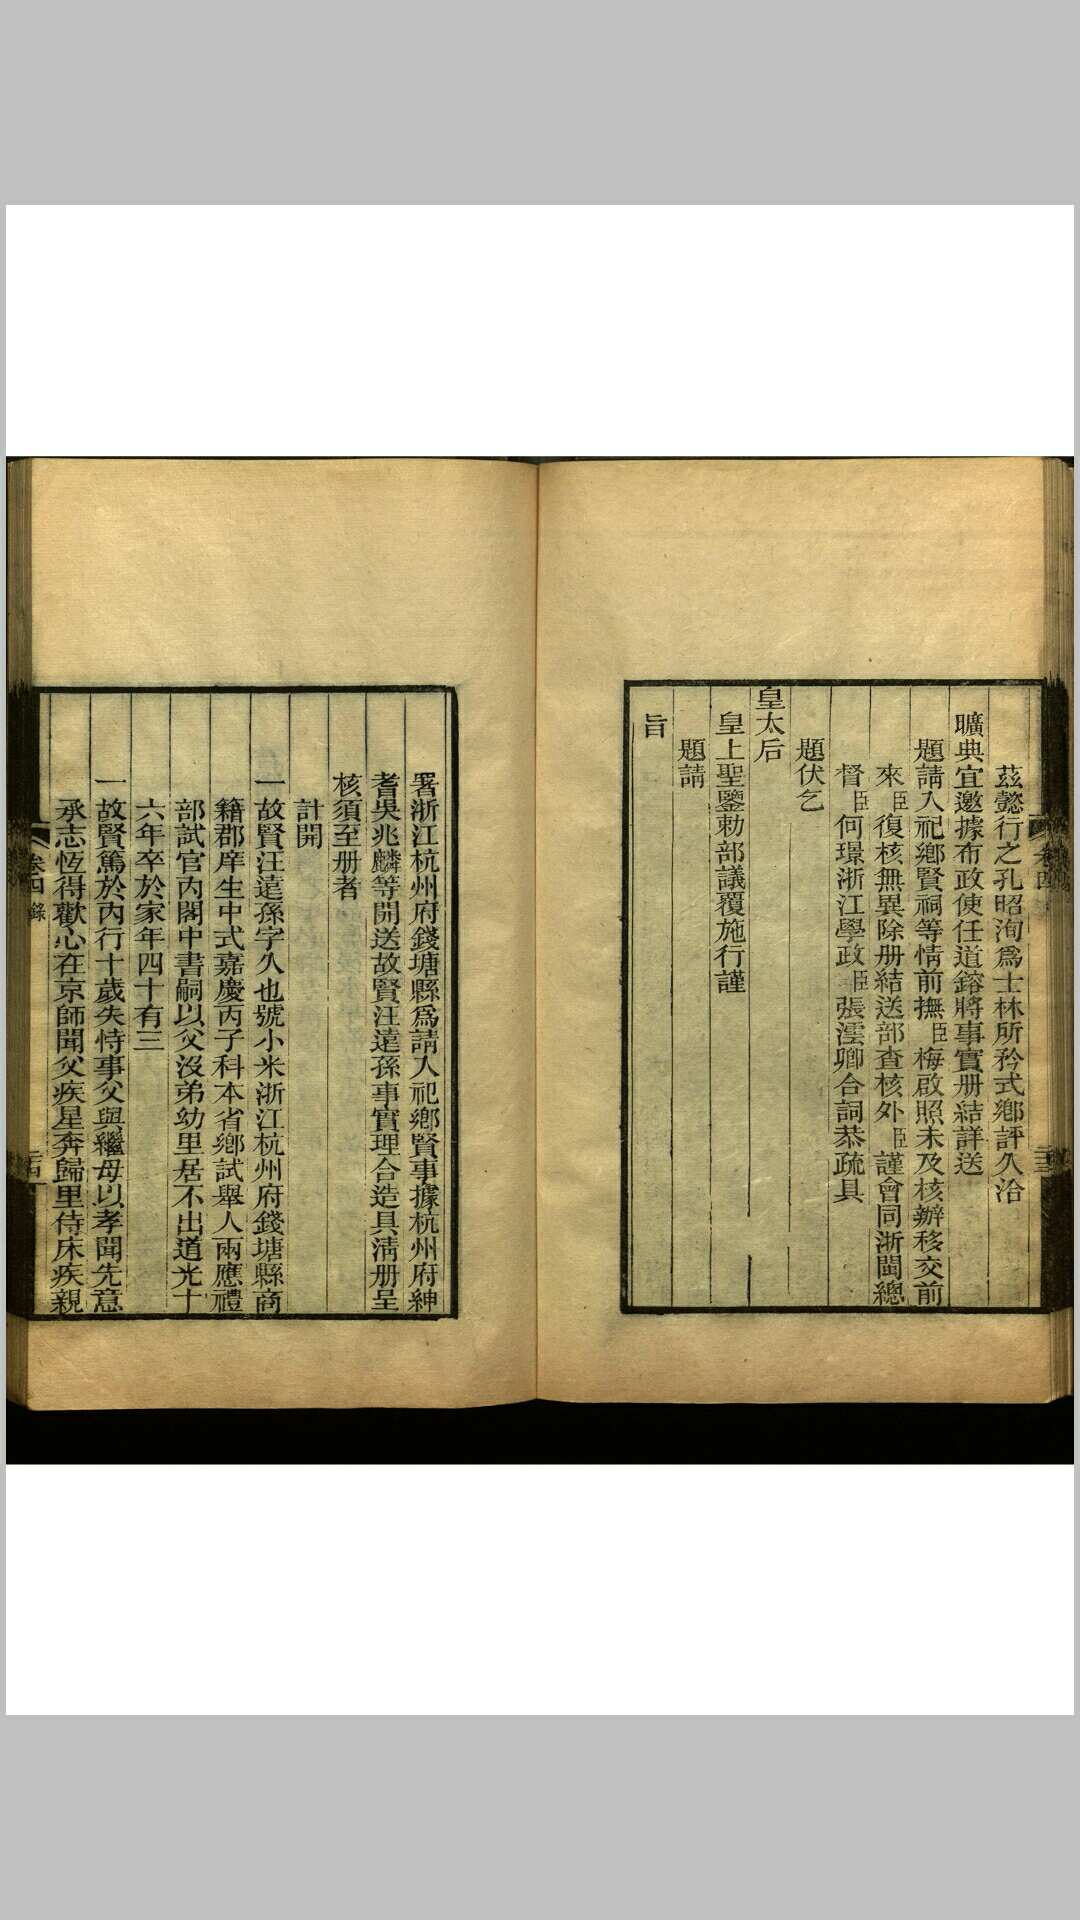 茲懿行之孔昭洵爲士林所矜式鄉評久洽
曠典宜邀據布政使任道鎔將事實册結詳送
題請入祀鄉賢祠等情前撫臣梅啟照未及核辦移交前
來臣復核無異除册結送部查核外臣謹會同浙閩總
督臣何璟浙江學政臣張澐卿合詞恭疏具
題伏乞
皇太后
皇上聖鑒勅部議覆施行謹
題請
旨
卷四
署浙江杭州府錢塘縣爲請入祀鄉賢事據杭州府紳
耆吳兆麟等開送故賢汪遠孫事實理合造具淸册呈
核須至册者
計開
一故賢汪遠孫字久也號小米浙江杭州府錢塘縣商
籍郡庠生中式嘉慶丙子科本省鄉試舉人兩應禮
部試官內閣中書嗣以父沒弟幼里居不出道光十
六年卒於家年四十有三
一故賢篤於內行十歲失恃事父與繼母以孝聞先意
承志恆得歡心在京師聞父疾星奔歸里侍床疾親
卷四 錄